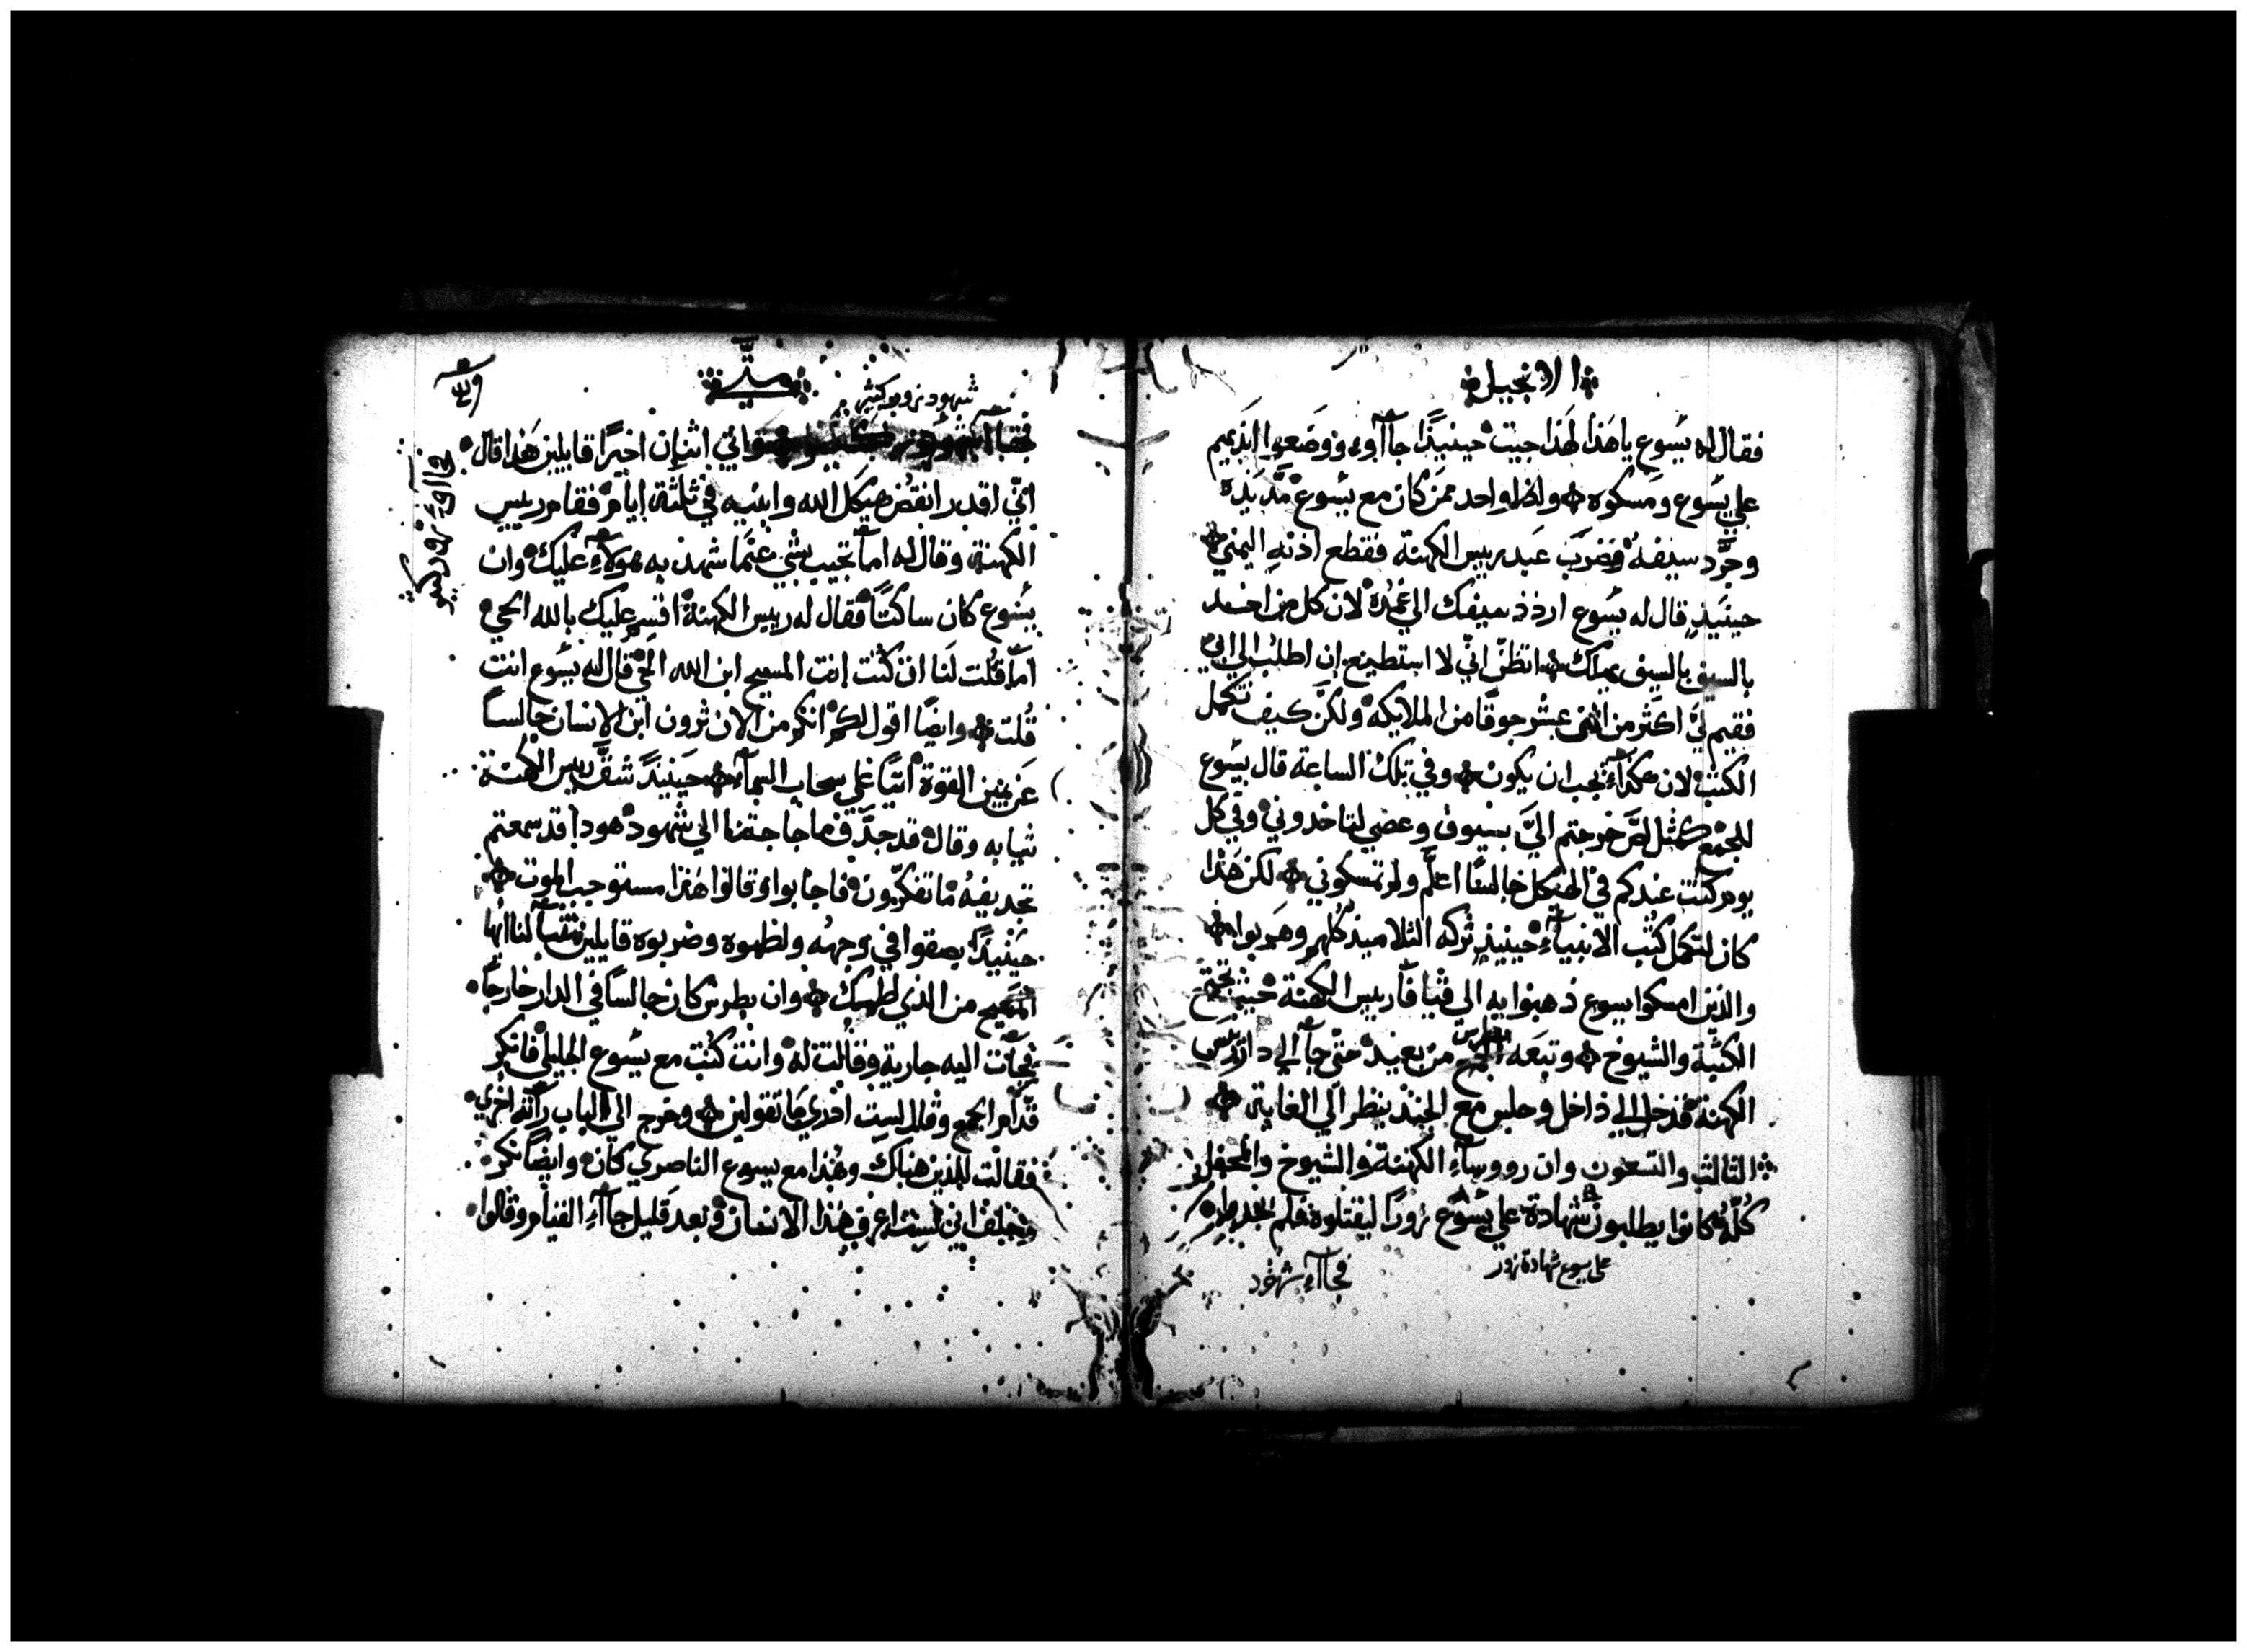 الانجيل
فقال له يسوع يا هذا لهذا جيت حينيذًا جآاوء ووضعوا ايديهم
علي يسوع ومسكوه واذا واحد ممن كان مع يسوع مَدّ يَدَه
وجرَّد سيفهُ وضربَ عَبد رييس الكهنة فقطع اذنهِ اليمني
حينَيذٍ قال له يسوع اردد سيفك الي غمده لان كل من اخد
بالسيف بالسيف يهلك اتظنّ انّي لا استطيع ان اطلب الي ابي
فقيم ليَّ اكثر من اثني عشر جوقًا من الملايكه ولكن كيف تكمل
الكتب لان هكذا يجب ان يكون وفي تلك الساعة قال يسوع
للجمع كمثل لصَّ خرجتم اليَّ بسيوف وعصي لتاخدوني وفي كل
يوم كنت عندكم في الهيكل جالسًا اعلَّم ولم تمسكوني لكن هَذا
كان لتكمل كتب الانبيآءِ حينيذٍ تركه التلاميذ كلهم وهَربوا
والذين امسكوا يسوع ذهبوا به الى قيافآ رييس الكهنة حيث تجتمع
الكتبة والشيوخ وتبعَه بطرس من بعيد حتّى جآ الي دار رييس
الكهنة فدخل الي داخل وجلس مع الجند ينظر الي الغاية
الثالث والتسعون وان رووسآءِ الكهنة والشيوخ والمحفل
كُلّهُ كانوا يطلبون شهادة علي يسُوع زورًا ليقتلوه فلم
علي يسوع شهادة زور
فجآآء شهود
متي
شهود زور كثير
واتي اثنان اخيرًا قايلين هَذا قال
انّي اقدر انقض هيكل الله وابنيه في ثلثة ايام فقام رييس
الكهنة وقال له امآ تجيب بشي عمّا شهد به هولآءِ عليك وان
يسوع كان ساكتًا فقال له رييس الكهنة اقسم عليك بالله الحي
امّا قلت لَنا ان كُنت انت المسيح ابن الله الحي قال له يسُوع انت
قُلت وايضًا اقول لكم انكم من الان ترون ابن الانسان جالسًا
عَن يمين القوة اتيًا علي سحاب السمآءِ حَينيدً شقَّ رييس الكهنة
ثيابه وقال قد جدَّف ما حاجتنا الي شهود هودا قد سمعتم
تجديفهُ ما تفكرون فاجابوا وقالوا هَذا مستوجب الموت
حَينيدً بصقوا في وجهُه ولطموه وضربوه قايلين تنبآ لنا ايها
المسيح من الذي لطمك وان بطرس كان جالسًا في الدار خارجًا
فجآت اليه جارية وقالت له وانت كنت مع يسوع الجليلي فانكر
قدَّام الجمع وقال لست ادري مَا تقولين وخرج الي الباب راته اخري
فقالت للذين هناك وهَذا مع يسوع الناصري كان وايضًا انكر
وحلف اني لست اعرف هَذا الانسان وبعد قليل جآآءِ القيام وقالوا